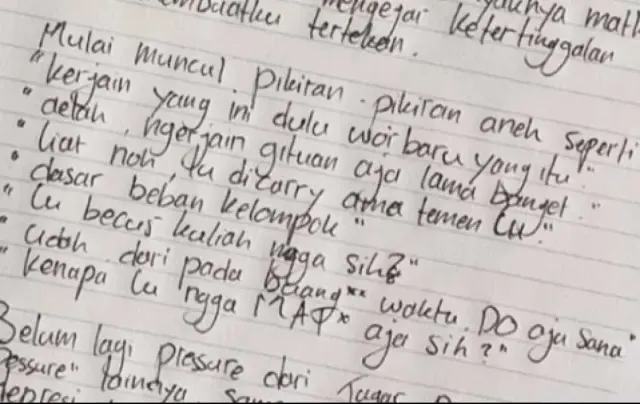 mengejar ketertinggalan
tertekan.
Mulai muncul pikiran-pikiran aneh seperti
"kerjain yang ini dulu woi baru yang itu!"
"aelah, ngerjain gituan aja lama banget."
"liat noh, lu dicarry ama temen lu."
"dasar beban kelompok"
"lu becus kuliah ngga sih?"
"udah dari pada buang** waktu. DO aja sana"
"kenapa lu ngga MAP* aja sih?"
Belum lagi pressure dari